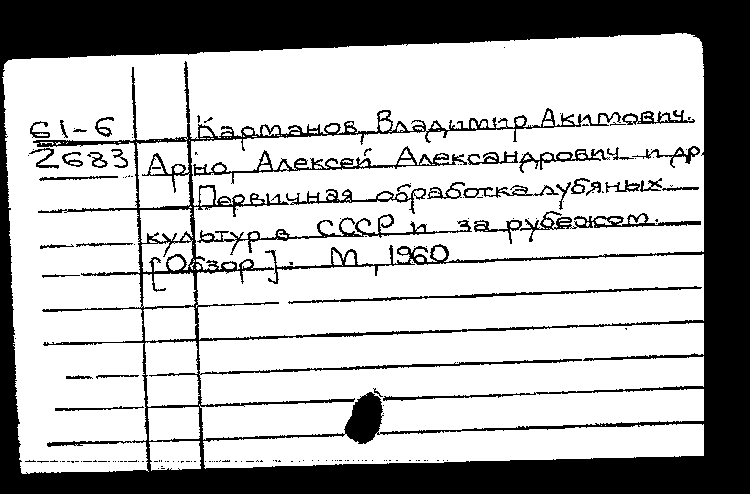 61-6 Карманов, Владимир Акимович.
2683 Арно, Алексей Александрович и др.
Первичная обработка лубяных
культур в СССР и за рубежом.
[Обзор]. М., 1960